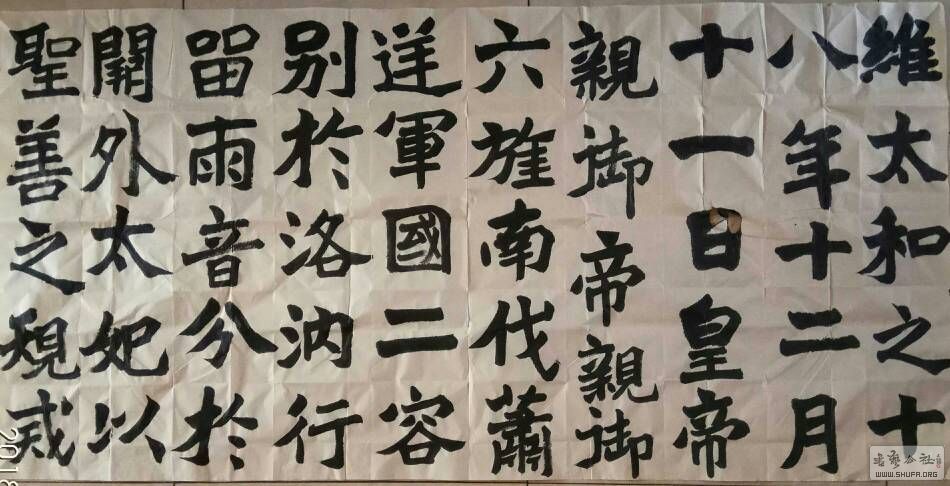 維太和之十
八年十二月
十一日皇帝
親御帝親御
六旌南伐蕭
逆軍國二容
別於洛汭行
留雨音分於
外太妃以
聖善之規戒
2018
书艺公社
WWW.SHUFA.ORG